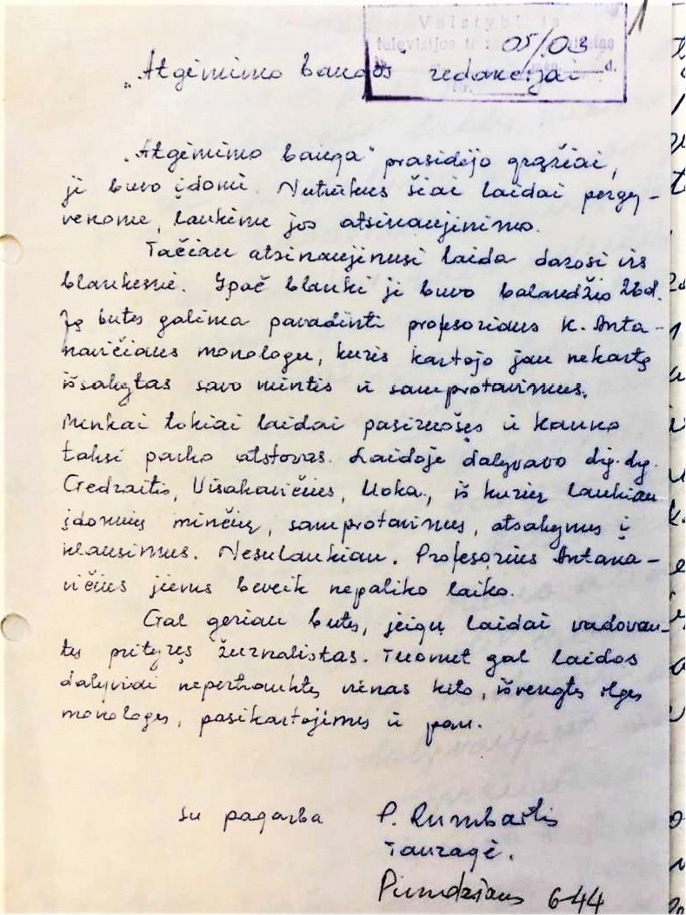 1
Valstybinis
televizijos ir
05/03
d.
Nr.
„Atgimimo bangos redakcijai
„Atgimimo banga“ prasidėjo gražiai,
ji buvo įdomi. Nutrūkus šiai laidai pergy-
venome, laukėme jos atsinaujinimo.
Tačiau atsinaujinusi laida darosi vis
blankesnė. Ypač blanki ji buvo balandžio 26d.
Ją būtų galima pavadinti profesoriaus K. Anta-
navičiaus monologu, kuris kartojo jau nekartą
išsakytas savo mintis ir samprotavimus.
Menkai tokiai laidai pasiruošęs ir Kauno
taksi parko atstovas. Laidoje dalyvavo drg. drg.
Gedraitis, Višakavičius, Uoka, iš kurių laukiau
įdomių minčių, samprotavimų, atsakymų į
klausimus. Nesulaukiau. Profesorius Antana-
vičius jiems beveik nepaliko laiko.
Gal geriau būtų, jeigu laidai vadovau-
tų prityręs žurnalistas. Tuomet gal laidos
dalyviai nepertrauktų vienas kito, išvengtų ilgų
monologų, pasikartojimų ir pan.
su pagarba P. Rumbaitis
Tauragė.
6-44